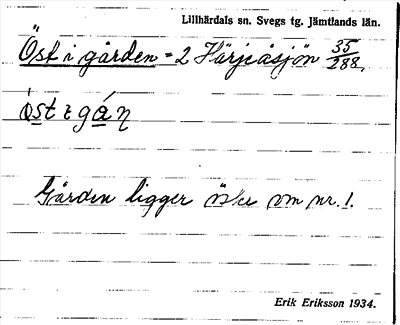 Lillhärdals sn. Svegs tg. Jämtlands län.
Öst i gården = 2 Härjeåsjön 35/288.
öst i gá̱ṇ
Gården ligger öster om nr. 1.
Erik Eriksson 1934.